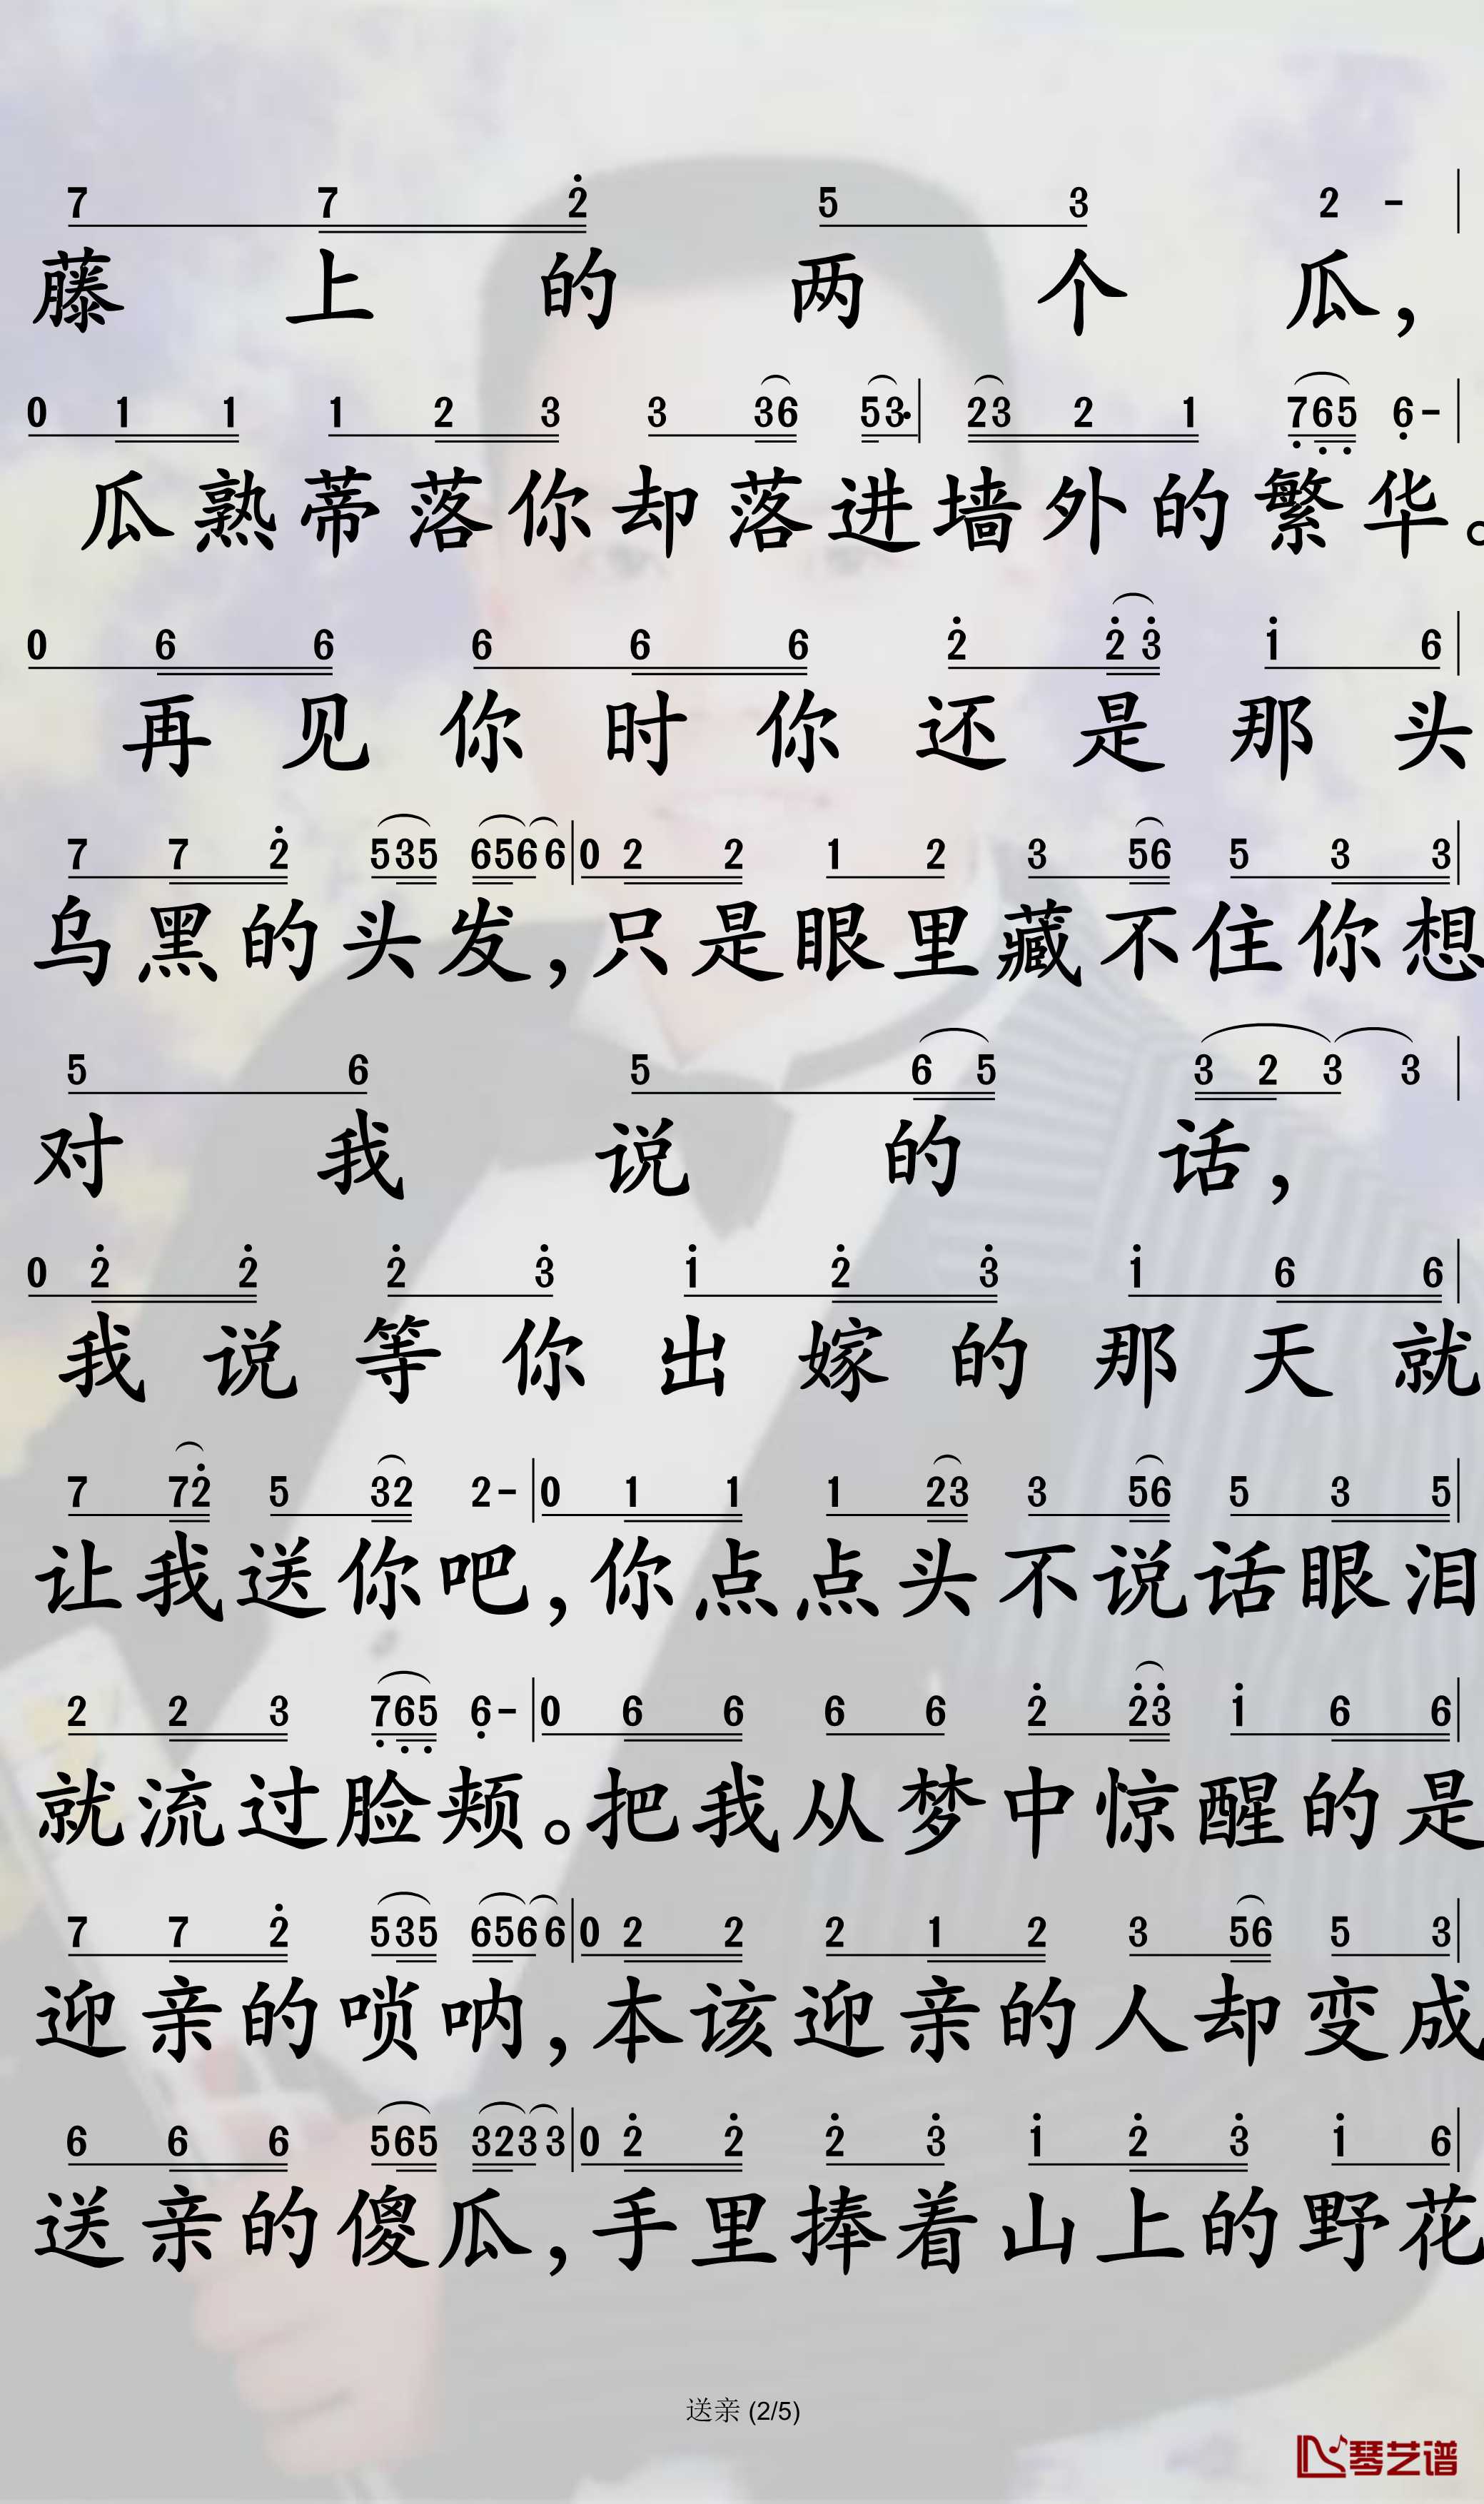 7 7 2̇ 5 3 2 - |
藤上的两个瓜，
0 1 1 1 2 3 3 36 53· | 23 2 1 7̣6̣5̣ 6̣- |
瓜熟蒂落你却落进墙外的繁华。
0 6 6 6 6 6 2̇ 2̇3̇ 1̇ 6 |
再见你时你还是那头
7 7 2̇ 535 656 6 | 0 2 2 1 2 3 56 5 3 3 |
乌黑的头发，只是眼里藏不住你想
5 6 5 6 5 3 2 3 3 |
对我说的话，
0 2̇ 2̇ 2̇ 3̇ 1̇ 2̇ 3̇ 1̇ 6 6 |
我说等你出嫁的那天就
7 72̇ 5 32 2- | 0 1 1 1 23 3 56 5 3 5 |
让我送你吧，你点点头不说话眼泪
2 2 3 7̣6̣5̣ 6̣- | 0 6 6 6 6 2̇ 2̇3̇ 1̇ 6 6 |
就流过脸颊。把我从梦中惊醒的是
7 7 2̇ 535 656 6 | 0 2 2 2 1 2 3 56 5 3 |
迎亲的唢呐，本该迎亲的人却变成
6 6 6 565 323 3 | 0 2̇ 2̇ 2̇ 3̇ 1̇ 2̇ 3̇ 1̇ 6 |
送亲的傻瓜，手里捧着山上的野花
送亲 (2/5)
琴艺谱